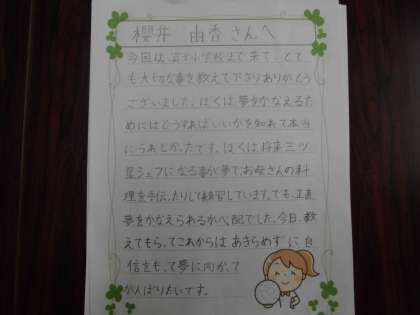 櫻井 由香さんへ
今回は、宮千小学校まで来て、とて
も大切な事を教えて下さりありがとう
ございました。ぼくは、夢をかなえるた
めにはどうすればいいかを知れて本当
にうれしかったです。ぼくは将来三ツ
星シェフになる事が夢で、お母さんの料
理を手伝ったりして練習しています。でも、正直
夢をかなえられるか心配でした。今日、教
えてもらってこれからは あきらめずに、自
信をもって夢に向かって
がんばりたいです。